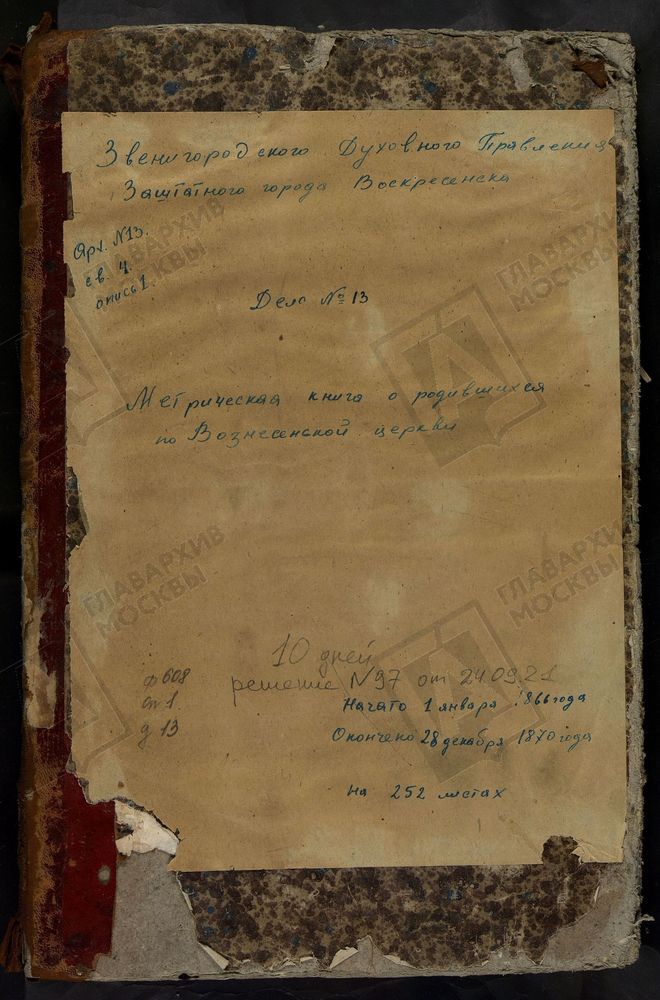 Звенигородского Духовного Правления
Заштатного города Воскресенска
Арх. №13.
св. 4.
опись 1.
Дело № 13
Метрическая книга о родившихся
по Вознесенской церкви
10 дней
решение №97 от 24.09.21
ф 608
оп 1
д 13
Начато 1 января 1866 года
Окончено 28 декабря 1870 года
на 252 листах
ГЛАВАРХИВ
МОСКВЫ
ГЛАВАРХИВ
МОСКВЫ
ГЛАВАРХИВ
МОСКВЫ
ГЛАВАРХИВ
МОСКВЫ